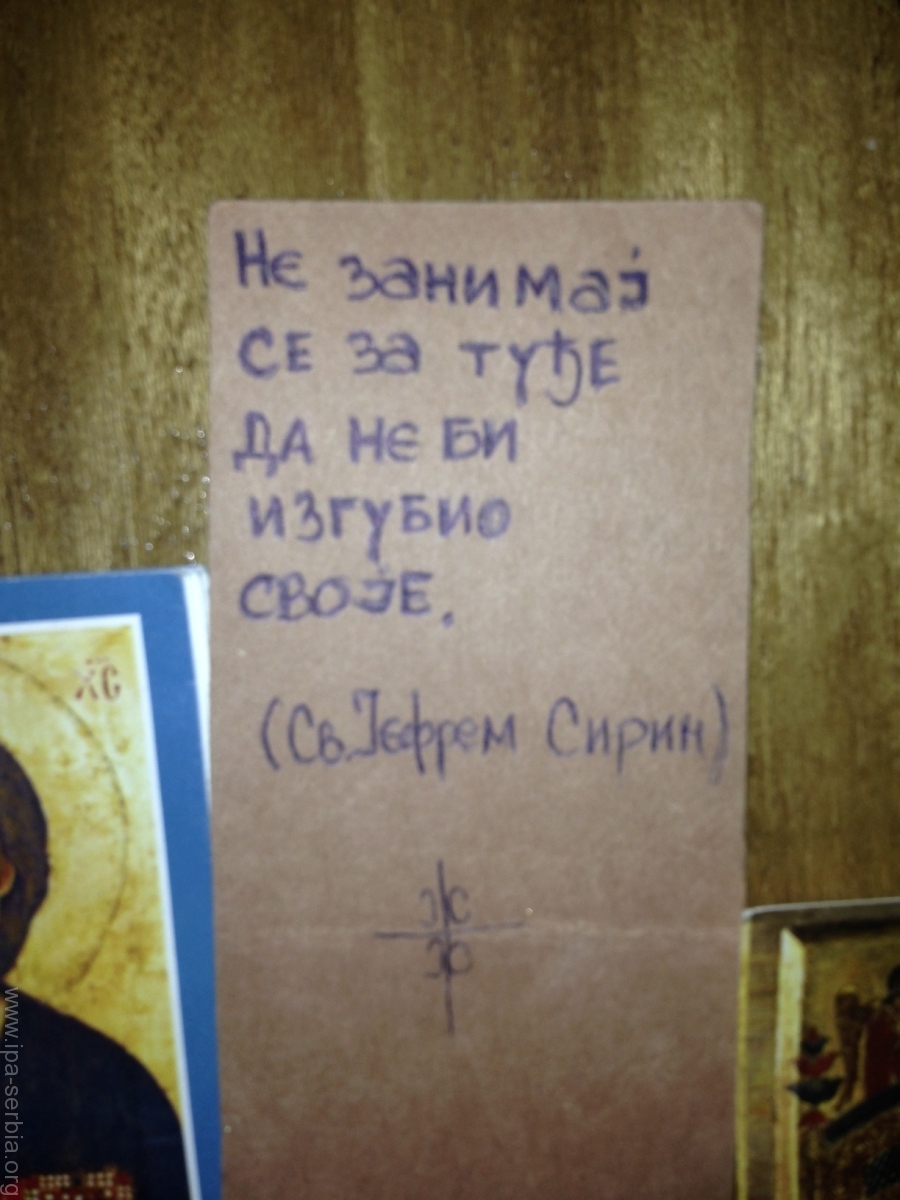 Не занимај
се за туђе
да не би
изгубио
своје.
(Св. Јефрем Сирин)
ХС
www.ipa-serbia.org